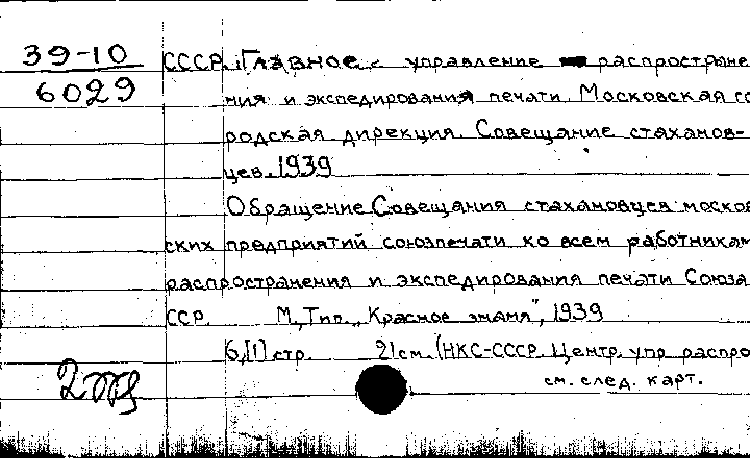 39-10
6029
СССР. Главное управление распростране
ния и экспедирования печати. Московская го
родская дирекция. Совещание стаханов-
цев. 1939
Обращение Совещания стахановцев москов
ских предприятий союзпечати ко всем работникам
распространения и экспедирования печати Союза
ССР. М., Тип. „Красное знамя", 1939
6, [1] стр. 21 см. (НКС-СССР. Центр. упр распро
см. след. карт.